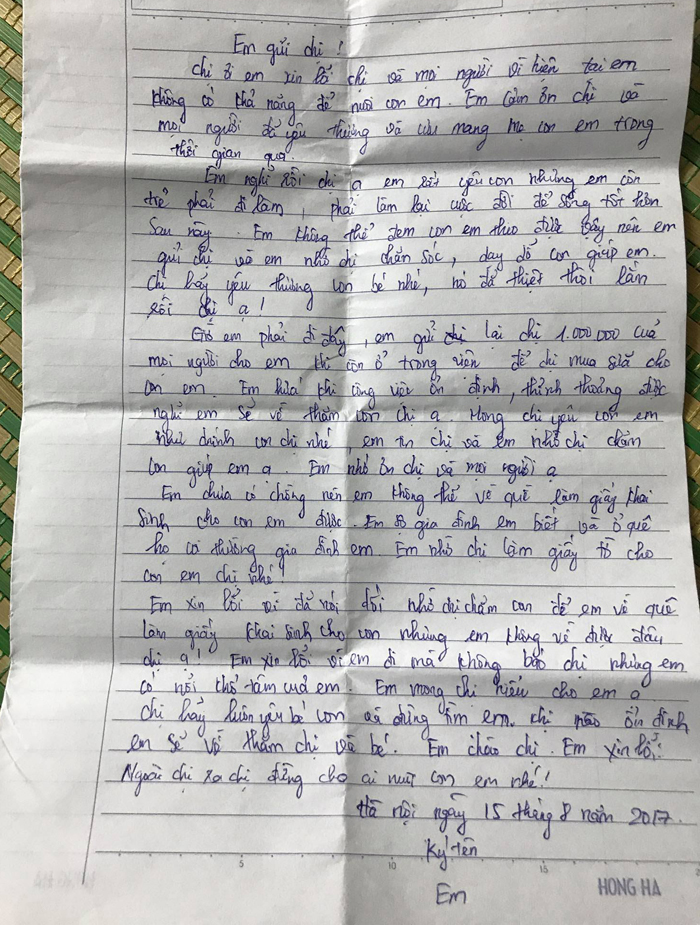 Em gửi chị !
Chị ơi em xin lỗi chị và mọi người vì hiện tại em
không có khả năng để nuôi con em. Em cảm ơn chị và
mọi người đã yêu thương và cưu mang mẹ con em trong
thời gian qua.
Em nghĩ rồi chị ạ em rất yêu con nhưng em còn
trẻ phải đi làm, phải làm lại cuộc đời để sống tốt hơn
sau này. Em không thể đem con em theo được vậy nên em
gửi chị và em nhờ chị chăm sóc, dạy dỗ con giúp em.
Chị hãy yêu thương con bé nhé, nó đã thiệt thòi lắm
rồi chị ạ !
Giờ em phải đi đây, em gửi lại chị 1.000.000 của
mọi người cho em khi còn ở trong viện để chị mua sữa cho
con em. Em hứa khi công việc ổn định, thỉnh thoảng được
nghỉ em sẽ về thăm con chị ạ. Mong chị yêu con em
như chính con chị nhé, em tin chị và em nhờ chị chăm
con giúp em ạ. Em nhớ ơn chị và mọi người ạ
Em chưa có chồng nên em không thể về quê làm giấy khai
sinh cho con em được. Em sợ gia đình em biết và ở quê
họ coi thường gia đình em. Em nhờ chị làm giấy tờ cho
con em chị nhé !
Em xin lỗi vì đã nói dối nhờ chị chăm con để em về quê
làm giấy khai sinh cho con nhưng em không về được đâu
chị ạ ! Em xin lỗi vì em đi mà không báo chị nhưng em
có nỗi khổ tâm của em. Em mong chị hiểu cho em ạ
Chị hãy luôn yêu bé con và đừng tìm em, khi nào ổn định
em sẽ về thăm chị và bé. Em chào chị. Em xin lỗi!
Ngoài chị ra chị đừng cho ai nuôi con em nhé !
Hà nội ngày 15 tháng 8 năm 2017.
Ký tên
5 10 15
HONG HA
Em